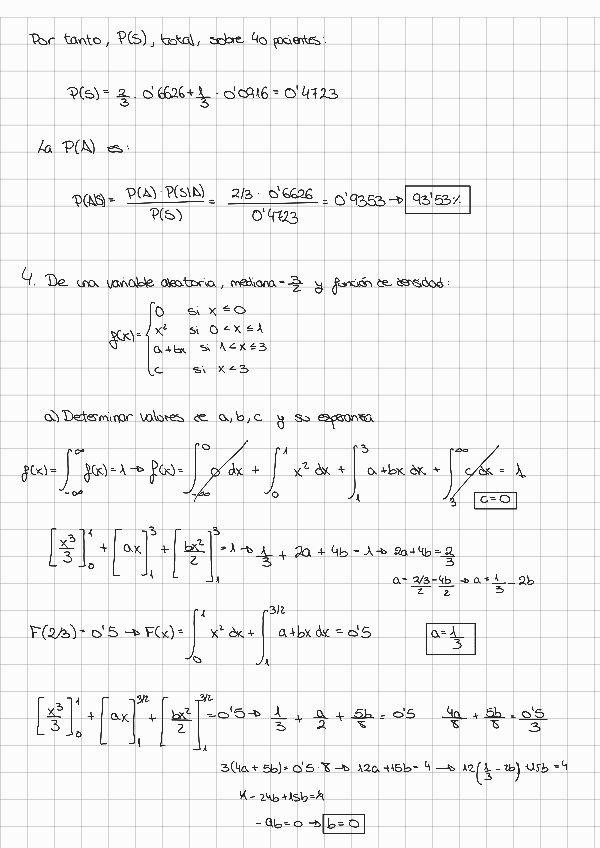 Por tanto, P(S), total, sobre 40 pacientes:
P(S) = 2/3 · 0'6626 + 1/3 · 0'0916 = 0'4723
La P(A) es:
P(A|S) = P(A) · P(S|A) / P(S) = 2/3 · 0'6626 / 0'4723 = 0'9353 → 93'53%
4. De una variable aleatoria, mediana = 3/2 y función de densidad:
f(x) = { 0 si x ≤ 0
x² si 0 < x ≤ 1
a + bx si 1 < x ≤ 3
c si x < 3
a) Determinar valores de a, b, c y su esperanza
f(x) = ∫_{-∞}^{∞} f(x) = 1 → f(x) = ∫_{-∞}^{0} 0 dx + ∫_{0}^{1} x² dx + ∫_{1}^{3} a + bx dx + ∫_{3}^{∞} c dx = 1
c = 0
[x³/3]_0^1 + [ax]_1^3 + [bx²/2]_1^3 = 1 → 1/3 + 2a + 4b = 1 → 2a + 4b = 2/3
a = 2/3/2 - 4b/2 → a = 1/3 - 2b
F(2/3) = 0'5 → F(x) = ∫_{0}^{1} x² dx + ∫_{1}^{3/2} a + bx dx = 0'5
a = 1/3
[x³/3]_0^1 + [ax]_1^{3/2} + [bx²/2]_1^{3/2} = 0'5 → 1/3 + a/2 + 5b/8 = 0'5 4a/8 + 5b/8 = 0'5/3
3(4a + 5b) = 0'5 · 8 → 12a + 15b = 4 → 12(1/3 - 2b) + 15b = 4
4 - 24b + 15b = 4
- 9b = 0 → b = 0